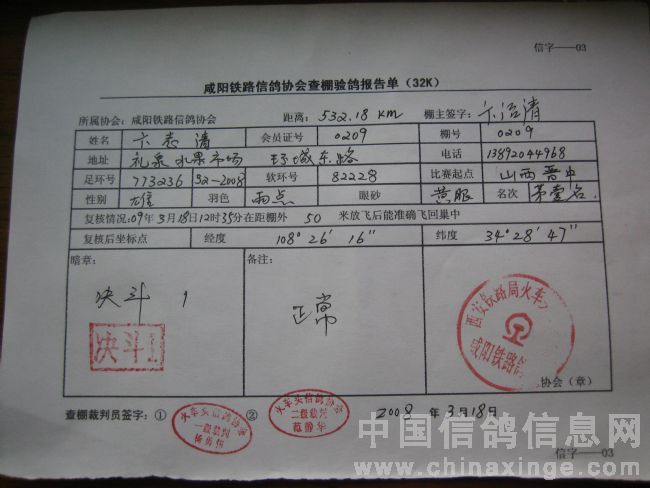 信字——03
咸阳铁路信鸽协会查棚验鸽报告单（32K）
所属协会：咸阳铁路信鸽协会 距离：532.18 KM 棚主签字：卞治清
姓名 卞志清 会员证号 0209 棚号 0209
地址 礼泉水果市场 环城东路 电话 13892044968
足环号 773236 32-2008 软环号 82228 比赛起点 山西晋中
性别 雄 羽色 雨点 眼砂 黄眼 名次 第壹名
复核情况：09年3月18日12时35分在距棚外 50 米放飞后能准确飞回巢中
复核后坐标点 经度 108° 26′ 16″ 纬度 34° 28′ 47″
暗章： 备注：
决斗 1 正常
决斗1
西安铁路局火车
咸阳铁路鸽
协会（章）
查棚裁判员签字：① ② 2008 年 3月18日
火车头信鸽协会
一级裁判
火车头信鸽协会
二级裁判
中国信鸽信息网
www.chinaxinge.com
信字——03